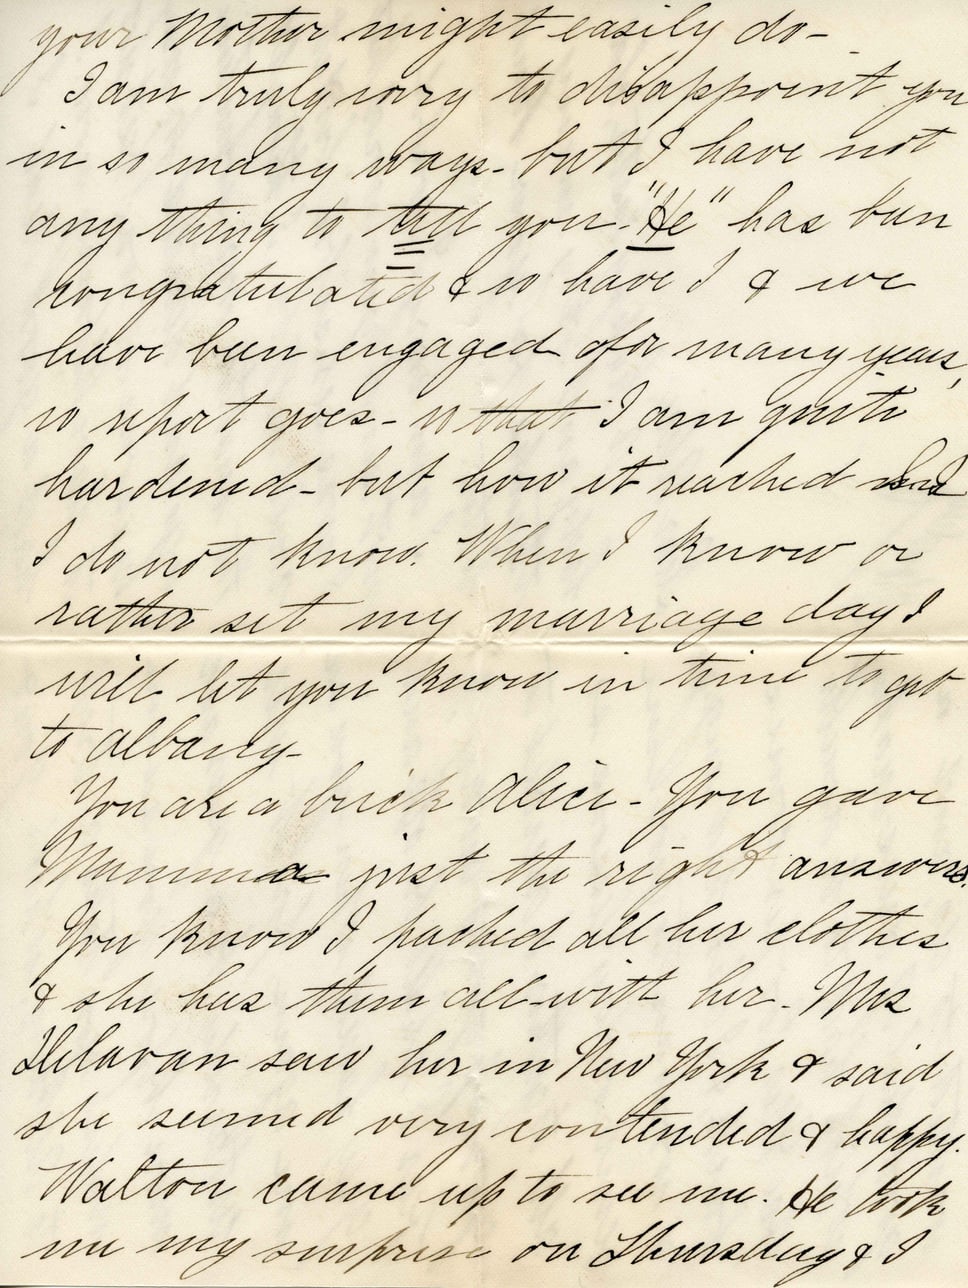 your Mother might easily do -
I am truly sorry to disappoint you
in so many ways - but I have not
any thing to tell you. "He" has been
congratulated & so have I & we
have been engaged for many years,
so report goes - so that I am quite
hardened - but how it reached
I do not know. When I know or
rather set my marriage day I
will let you know in time to get
to Albany -
You are a brick Alice - You gave
Mamma just the right answers.
You know I packed all her clothes
& she has them all with her. Mrs
Delavan saw her in New York & said
she seemed very contended & happy.
Walton came up to see me. He took
me my surprise on Thursday & I